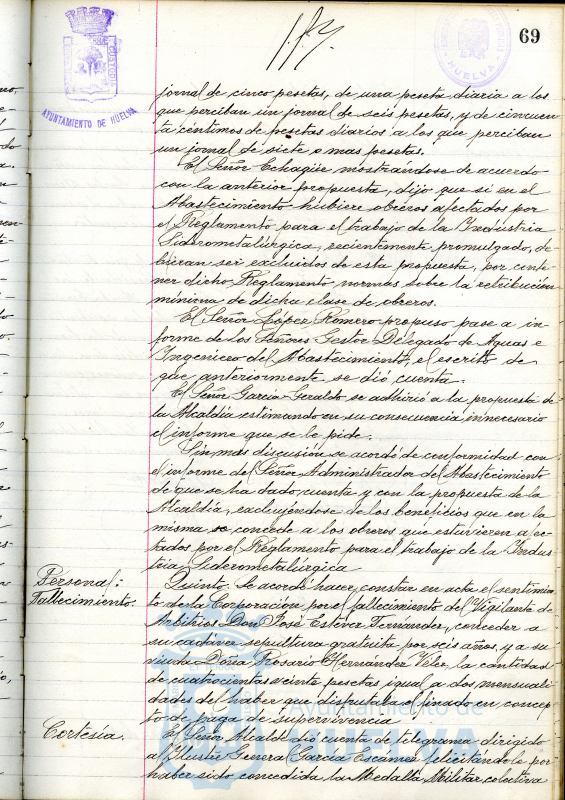 69
AYUNTAMIENTO DE HUELVA
HUELVA
jornal de cinco pesetas, de una peseta diaria a los
que perciban un jornal de seis pesetas, y de cincuen
ta centimos de pesetas diarios a los que perciban
un jornal de siete o mas pesetas.
El Señor Echagüe mostrándose de acuerdo
con la anterior propuesta, dijo que si en el
Abastecimiento hubiere obreros afectados por
el Reglamento para el trabajo de la Industria
Siderometalúrgica, recientemente promulgado, de
bieran ser excluidos de esta propuesta, por conte
ner dicho Reglamento normas sobre la retribución
minima de dicha clase de obreros.
El Señor López Romero propuso pase a in
forme de los Señores Gestor Delegado de Aguas e
Ingeniero del Abastecimiento, el escrito de
que anteriormente se dió cuenta.
El Señor Garcia-Geraldo se adhirió a la propuesta de
la Alcaldia estimando en su consecuencia innecesario
el informe que se le pide.
Sin mas discusión se acordó de conformidad con
el informe del Señor Administrador del Abastecimiento
de que se ha dado cuenta y con la propuesta de la
Alcaldía, excluyéndose de los beneficios que con la
misma se concede a los obreros que estuvieren afec
tados por el Reglamento para el trabajo de la Indus
tria Siderometalúrgica
Personal:
Fallecimiento.
Quinto. Se acordó hacer constar en acta el sentimien
to de la Corporación por el fallecimiento del Vigilante de
Arbitrios Don José Estévez Fernández, conceder a
su cadáver sepultura gratuita por seis años, y a su
viuda Doña Rosario Hernández Vélez, la cantidad
de cuatrocientas veinte pesetas, igual a dos mensuali
dades del haber que disfrutaba el finado en concep
to de paga de supervivencia
Cortesía.
El Señor Alcalde dió cuenta de telegrama dirigido
al Ilustre General García Escámez felicitándole por
haber sido concedida la Medalla Militar colectiva
Ayuntamiento de
HUELVA